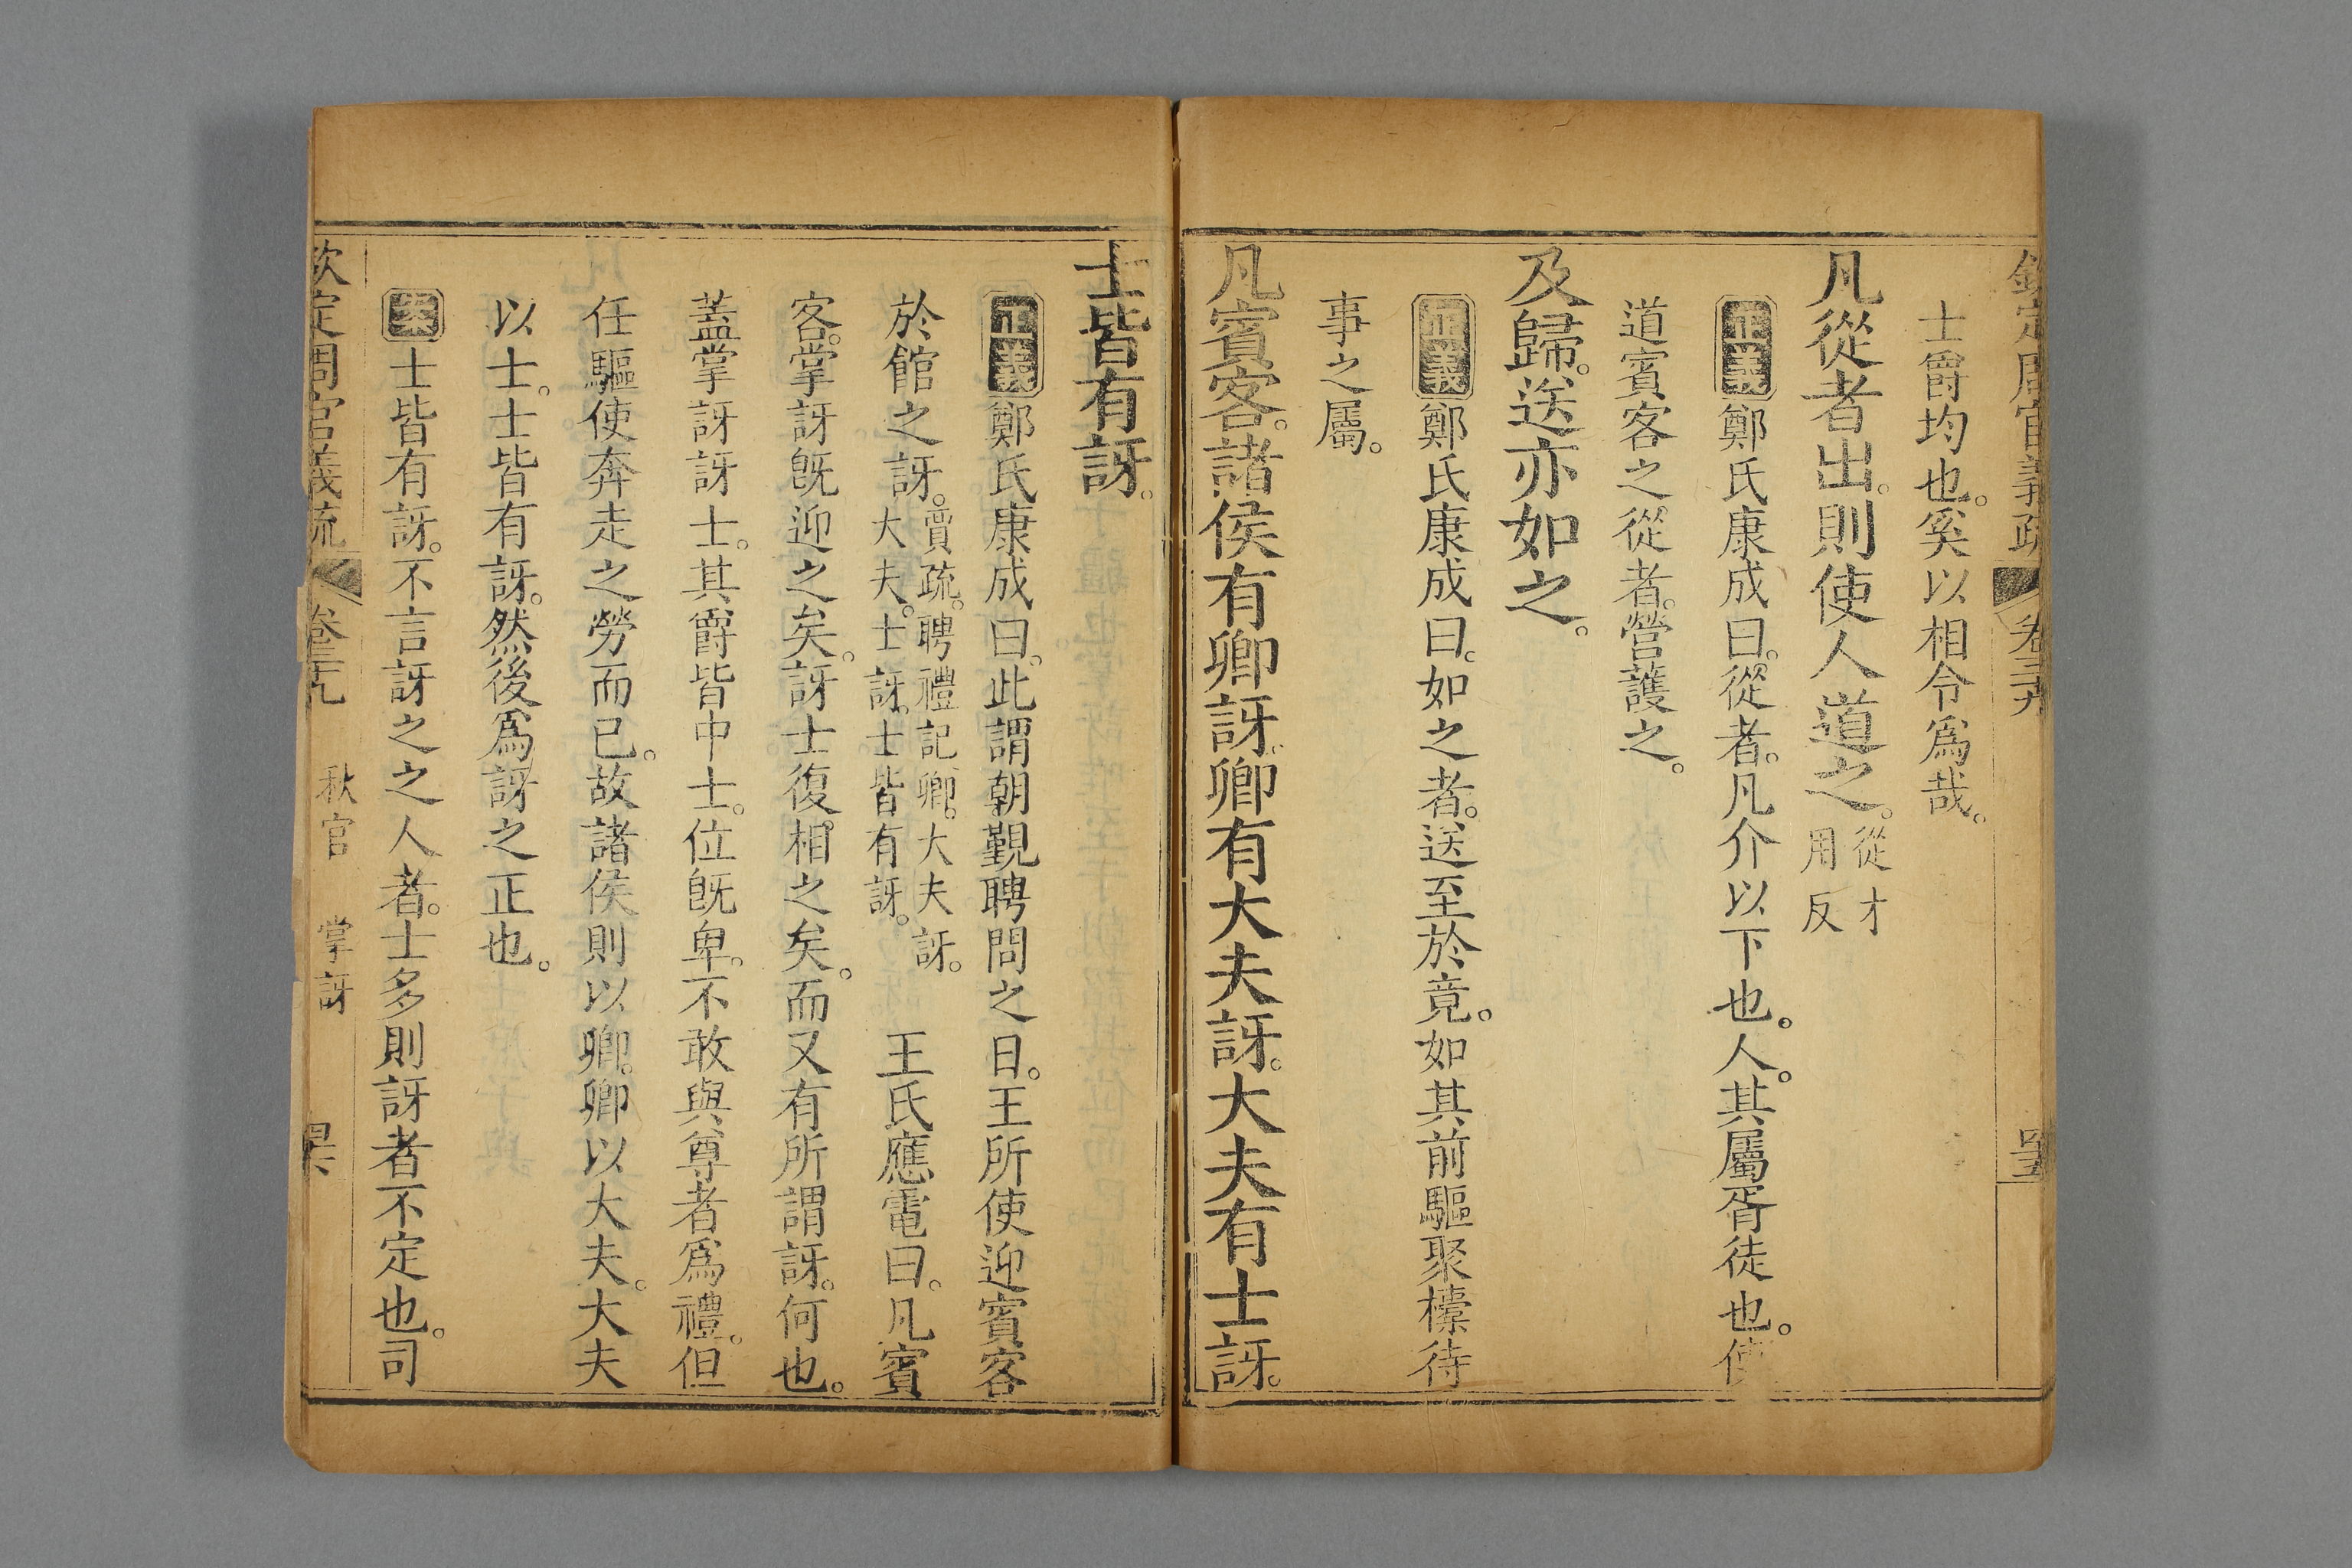 欽定周官義疏 卷三十九 罡
士爵均也。奚以相令爲哉。
凡從者出。則使人道之。從才
用反
正義鄭氏康成曰。從者。凡介以下也。人。其屬胥徒也。使
道賓客之從者。營護之。
及歸。送亦如之。
正義鄭氏康成曰。如之者。送至於竟。如其前驅聚㯓待
事之屬。
凡賓客。諸侯有卿訝。卿有大夫訝。大夫有士訝。
士皆有訝。
正義鄭氏康成曰。此謂朝覲聘問之日。王所使迎賓客
於館之訝。賈疏。聘禮記。卿。大夫訝。
大夫。士訝。士皆有訝。
王氏應電曰。凡賓
客。掌訝旣迎之矣。訝士復相之矣。而又有所謂訝。何也。
蓋掌訝訝士。其爵皆中士。位旣卑。不敢與尊者爲禮。但
任驅使奔走之勞而已。故諸侯則以卿。卿以大夫。大夫
以士。士皆有訝。然後爲訝之正也。
案士皆有訝。不言訝之之人者。士多則訝者不定也。司
欽定周官義疏 卷三十九 秋官 掌訝